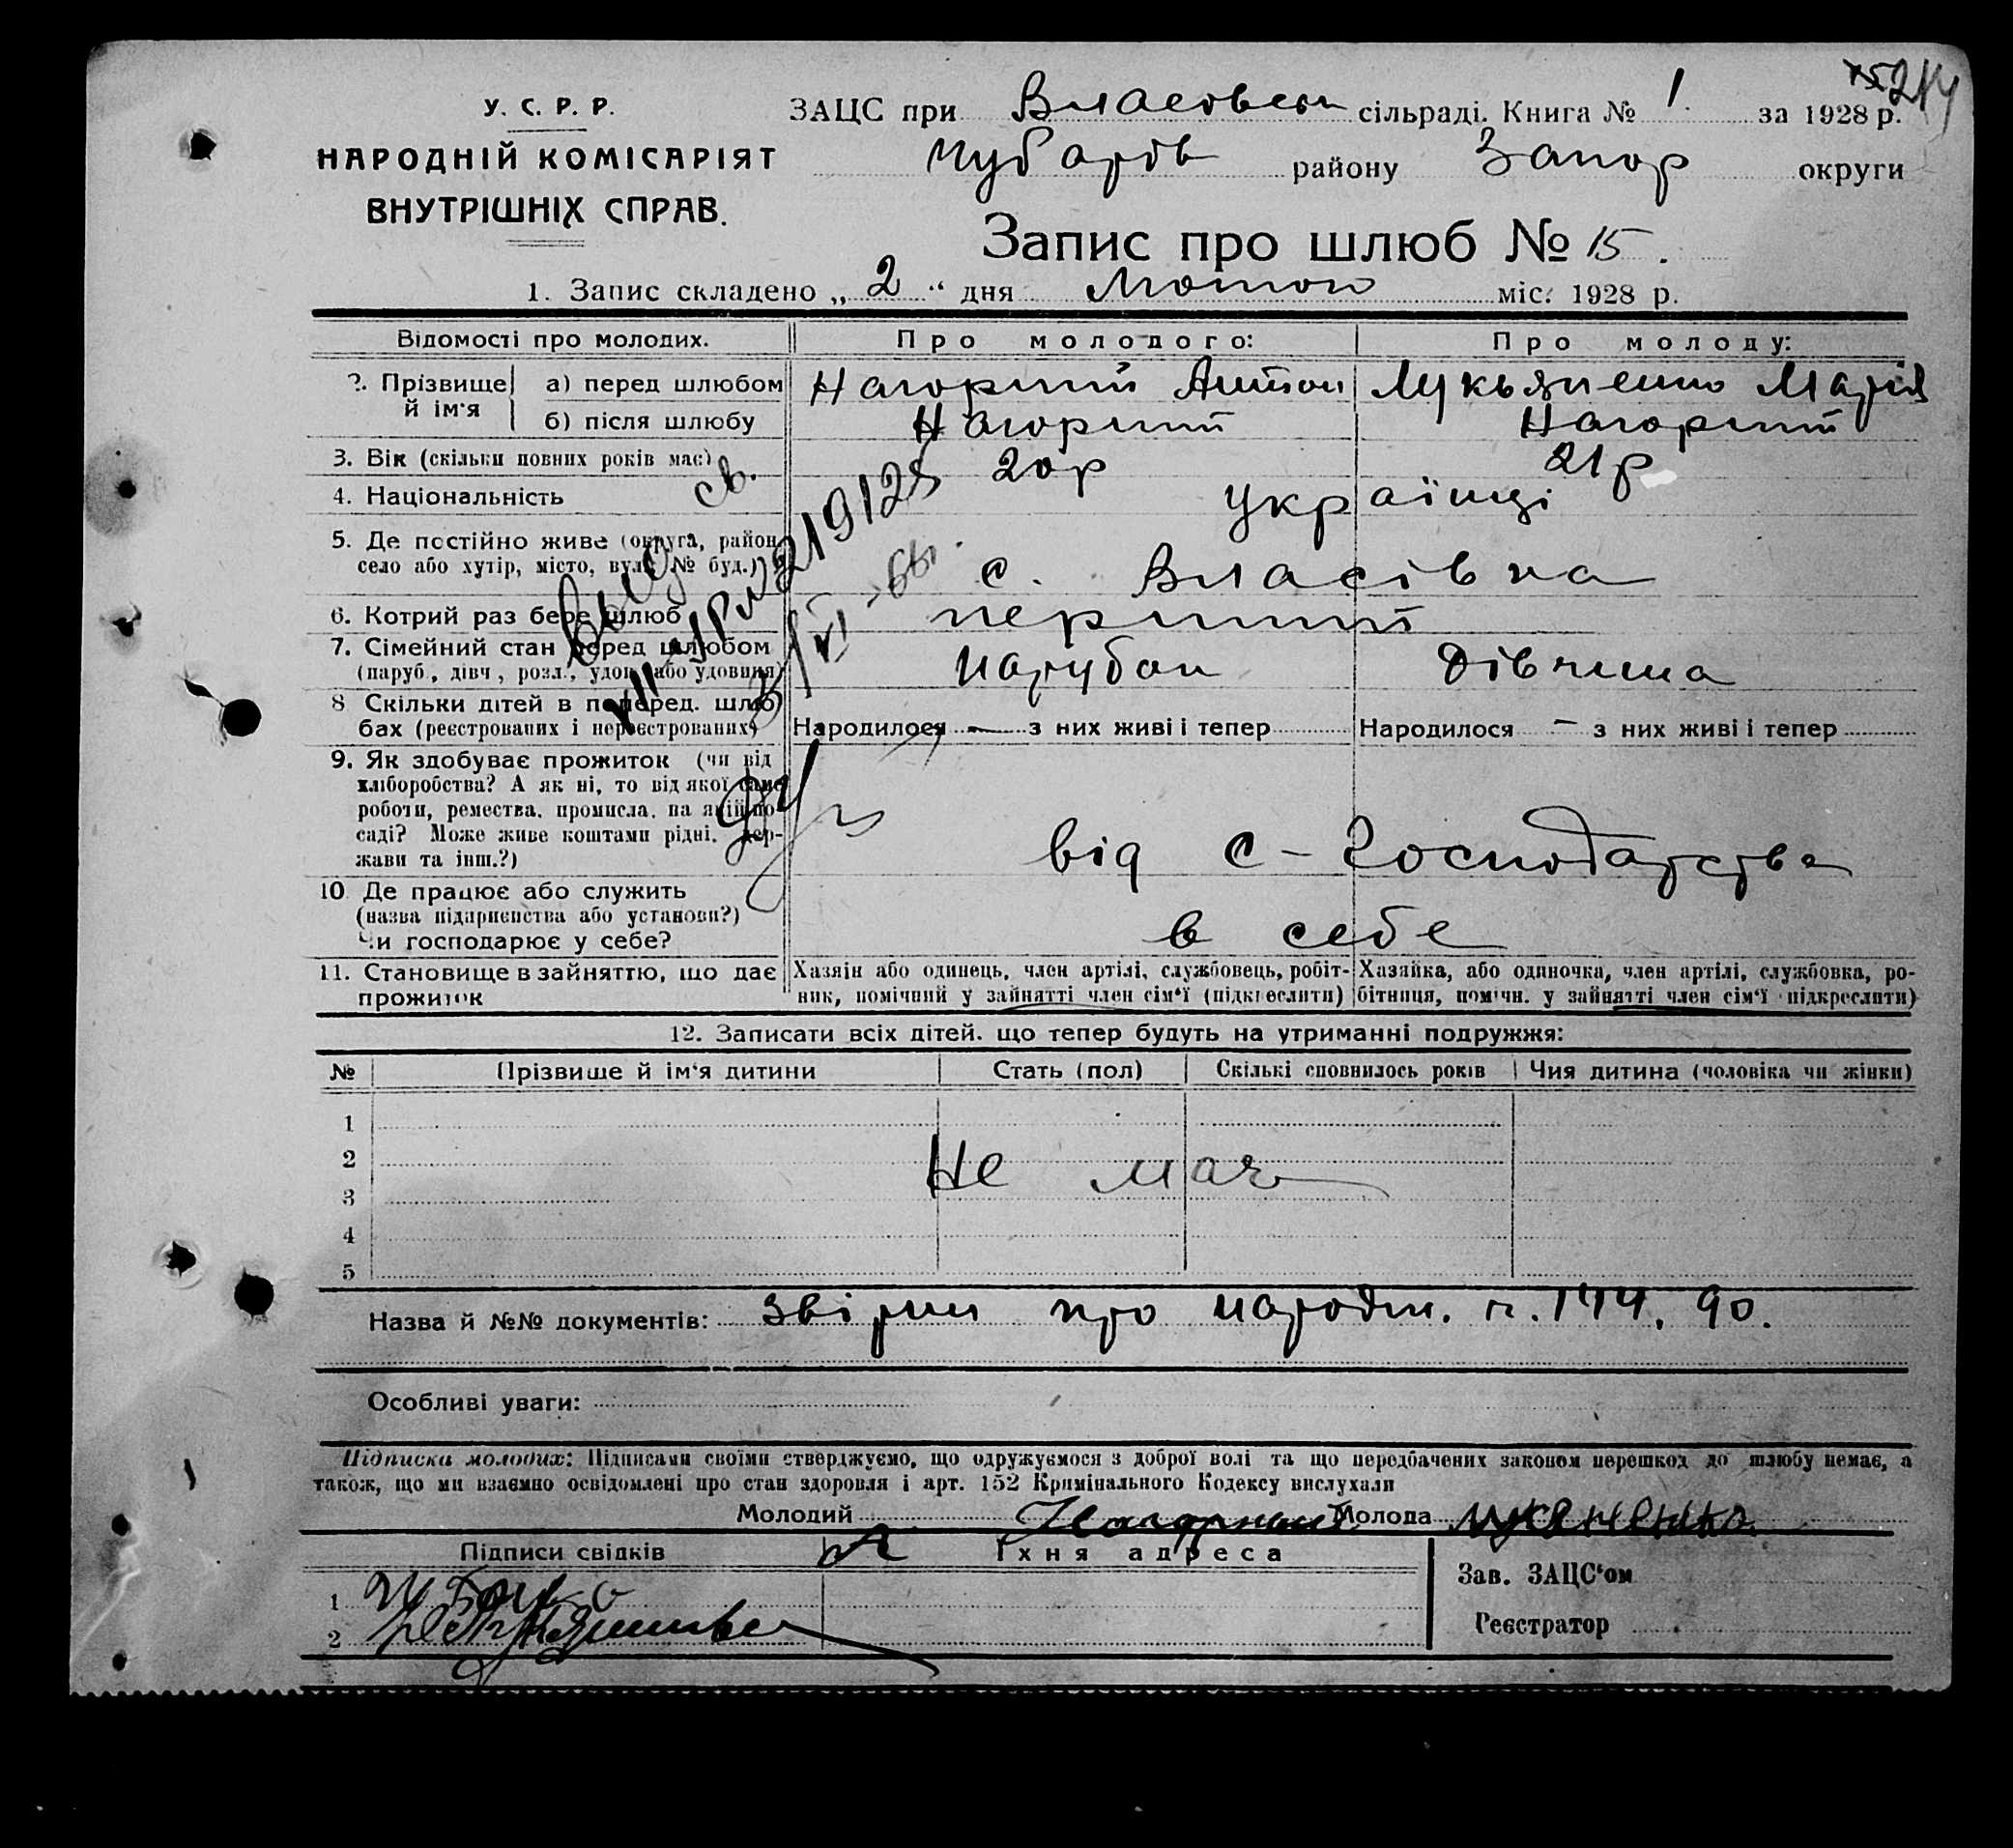 У. С. Р. Р.
НАРОДНІЙ КОМІСАРІЯТ
ВНУТРІШНІХ СПРАВ.
214
ЗАЦС при Власовськ сільраді. Книга № 1. за 1928 р.
Чубарів району Запор округи
Запис про шлюб № 15.
1. Запис складено „2“ дня Лютого міс. 1928 р.
Відомості про молодих. Про молодого: Про молоду:
2. Прізвище й ім'я а) перед шлюбом Нагорний Антон Лукьяненко Марія
б) після шлюбу Нагорний Нагорний
3. Вік (скільки повних років має) 20р 21р
4. Національність українці
5. Де постійно живе (округа, район, село або хутір, місто, вул. № буд.) с. Власівка
6. Котрий раз бере шлюб перший
7. Сімейний стан перед шлюбом
(паруб., дівч., розл., удов. або удовиця) парубок дівчина
8 Скільки дітей в поперед. шлюбах (реєстрованих і нереєстрованих) Народилося — з них живі і тепер Народилося — з них живі і тепер
9. Як здобуває прожиток (чи від
хліборобства? А як ні, то від якої саме
роботи, ремества, промисла, на якій по-
саді? Може живе коштами рідні, дер-
жави та інш.?) від с-господарства
10 Де працює або служить
(назва підприємства або установи?)
Чи господарює у себе? в себе
11. Становище в зайняттю, що дає прожиток
Хазяін або одинець, член артілі, службовець, робіт-
ник, помічний у зайнятті член сім'ї (підкреслити)
Хазяйка, або одиночка, член артілі, службовка, ро-
бітниця, помічн. у зайнятті член сім'ї підкреслити)
12. Записати всіх дітей, що тепер будуть на утриманні подружжя:
№ Прізвище й ім'я дитини Стать (пол) Скількі сповнилось років Чия дитина (чоловіка чи жінки)
1
2 Не має
3
4
5
Назва й №№ документів: звірки про народж. ч. 144, 90.
Особливі уваги:
Підписка молодих: Підписами своїми стверджуємо, що одружуємося з доброї волі та що передбачених законом перешкод до шлюбу немає, а
також, що ми взаємно освідомлені про стан здоровля і арт. 152 Кримінального Кодексу вислухали
Молодий Нагорный Молода Лукяненко
Підписи свідків Їхня адреса
Зав. ЗАЦС'ом
1
2
Реєстратор